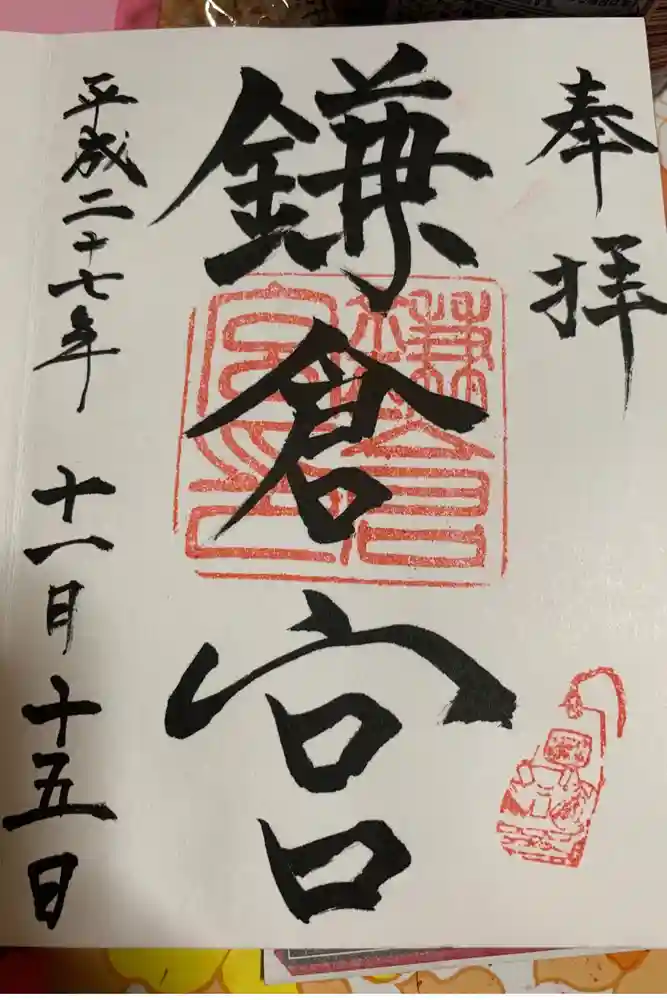 奉拝
鎌倉宮
平成二十七年 十一月十五日
鎌倉宮印